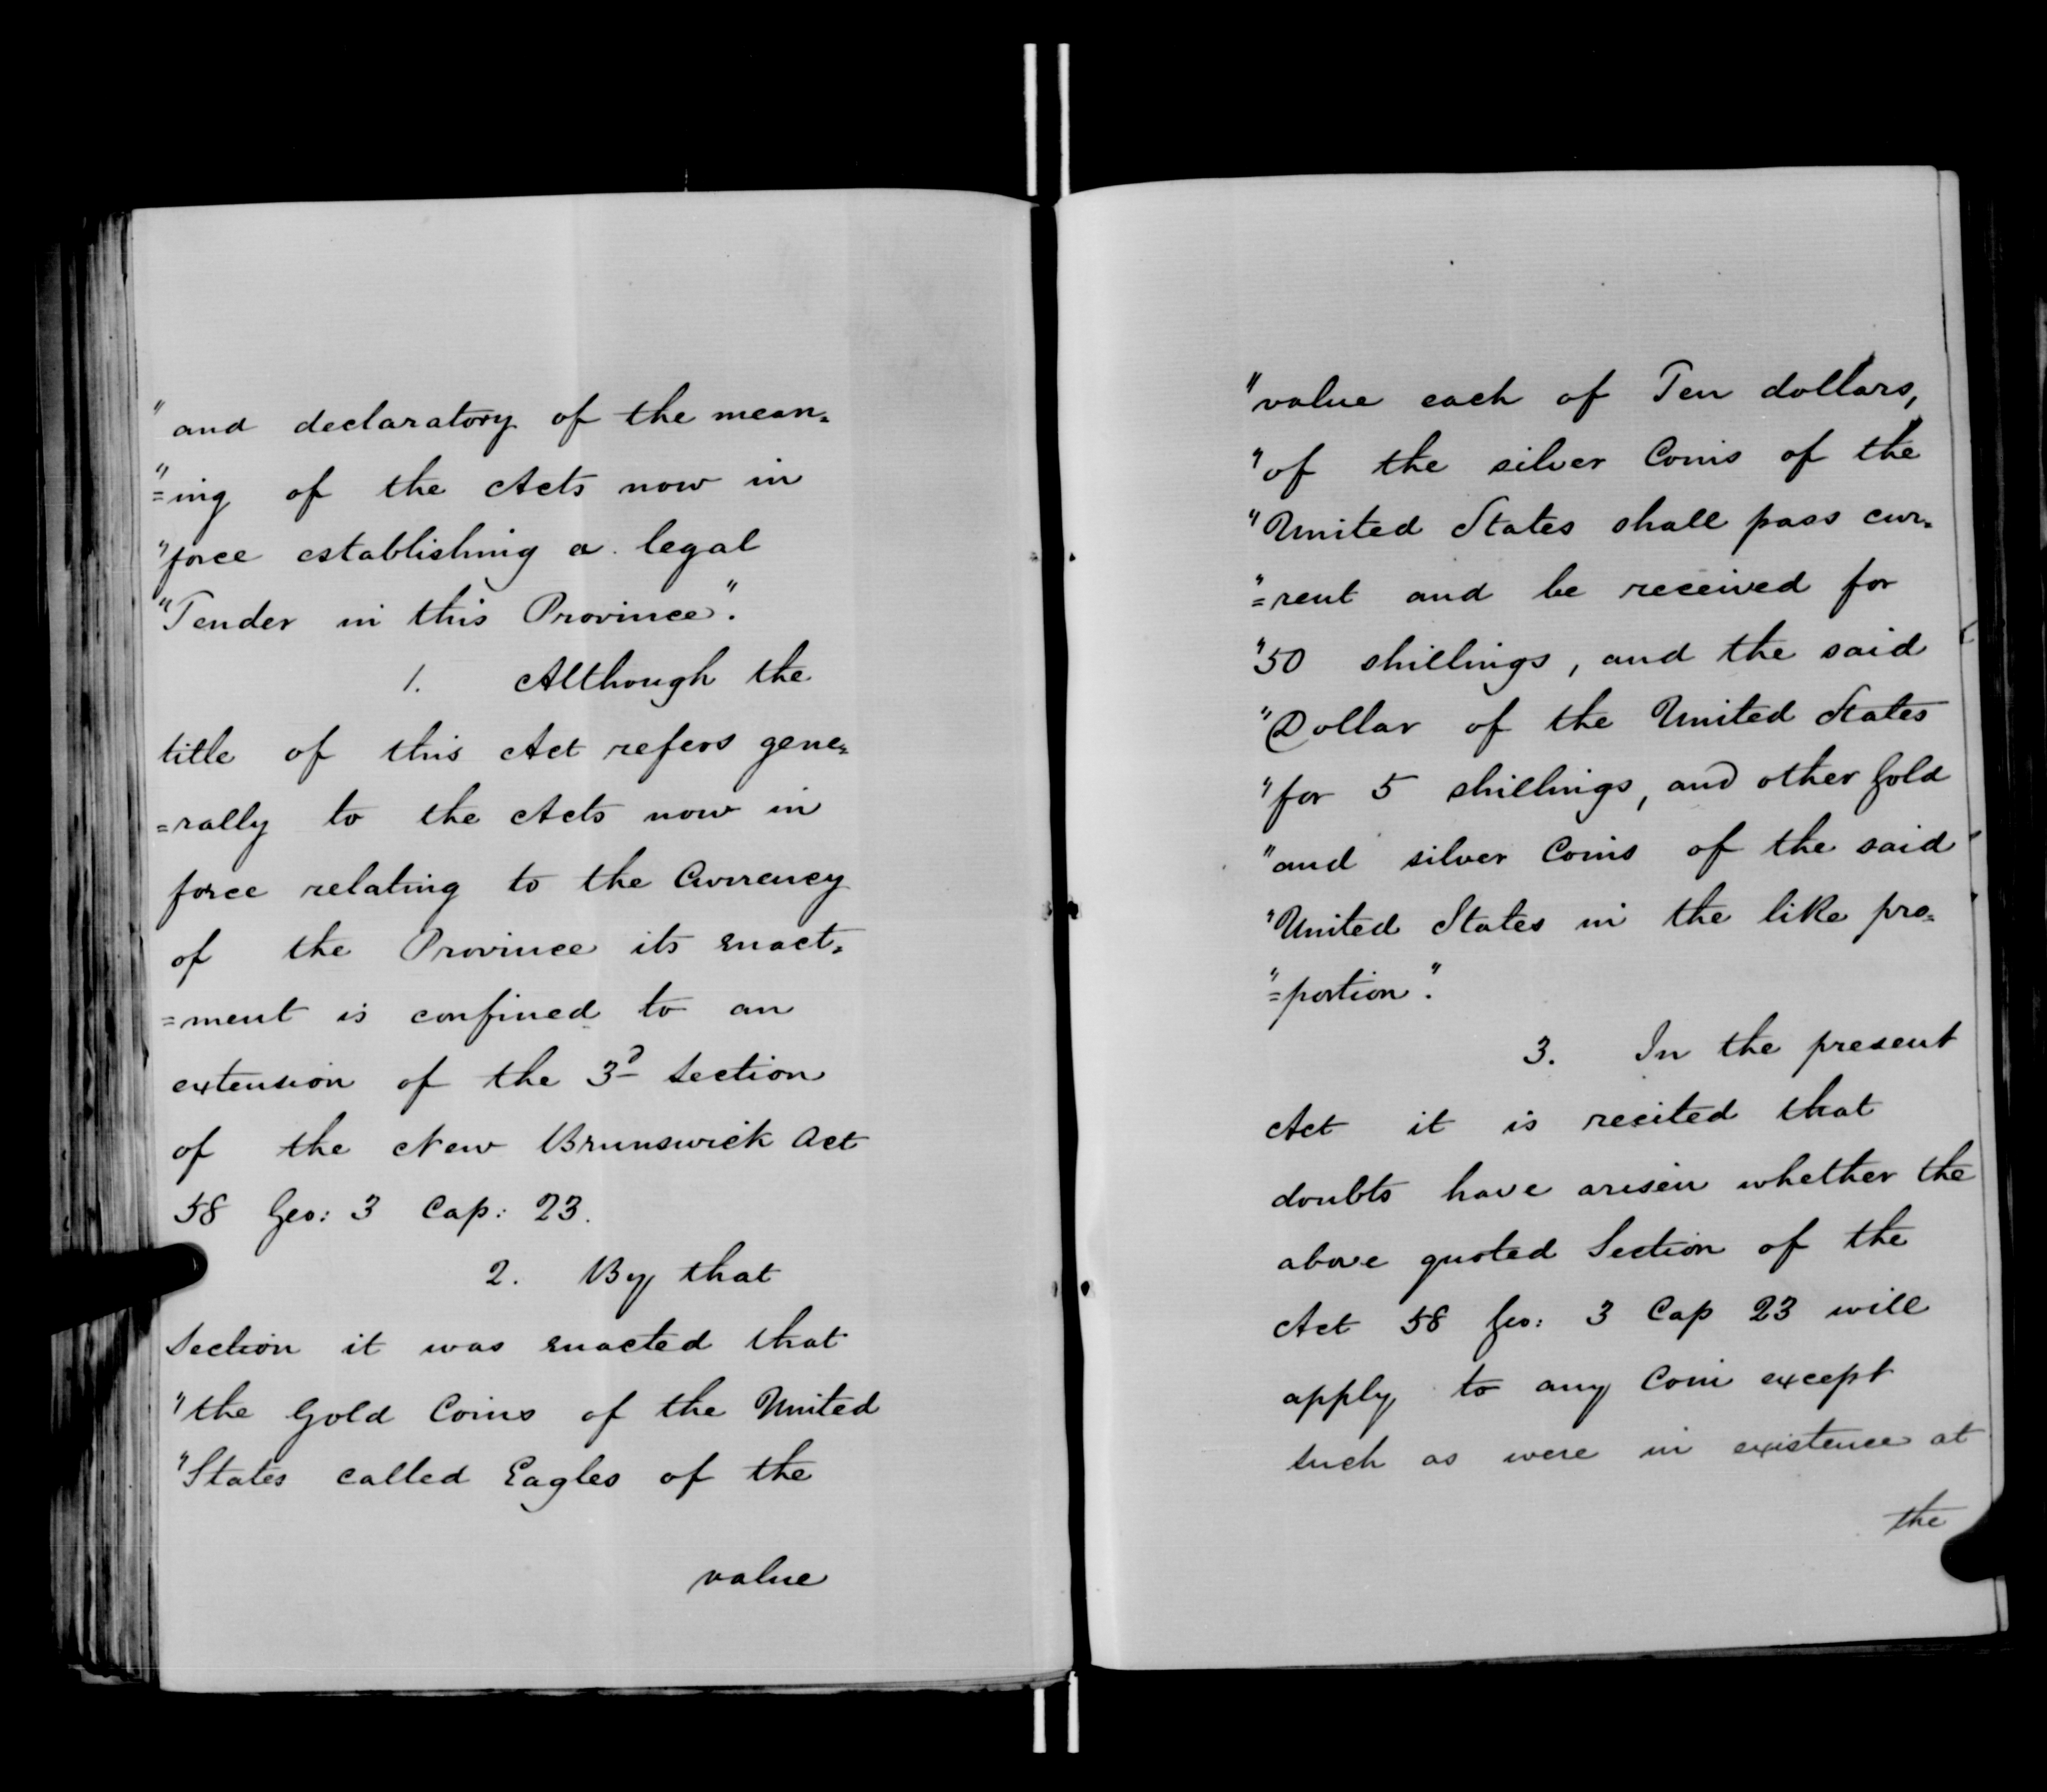 " and declaratory of the mean=
"=ing of the Acts now in
"force establishing a legal
"Tender in this Province."
1. Although the
title of this Act refers gene=
=rally to the Acts now in
force relating to the Currency
of the Province its enact=
=ment is confined to an
extension of the 3d Section
of the New Brunswick Act
58 Geo: 3 Cap: 23.
2. By that
Section it was enacted that
"the Gold Coins of the United
"States called Eagles of the
value
"value each of Ten dollars,
"of the silver Coins of the
"United States shall pass cur=
"=rent and be received for
"50 shillings, and the said
"Dollar of the United States
"for 5 shillings, and other Gold
"and silver Coins of the said
"United States in the like pro=
"=portion."
3. In the present
Act it is recited that
doubts have arisen whether the
above quoted Section of the
Act 58 Geo: 3 Cap 23 will
apply to any Coin except
such as were in existence at
the